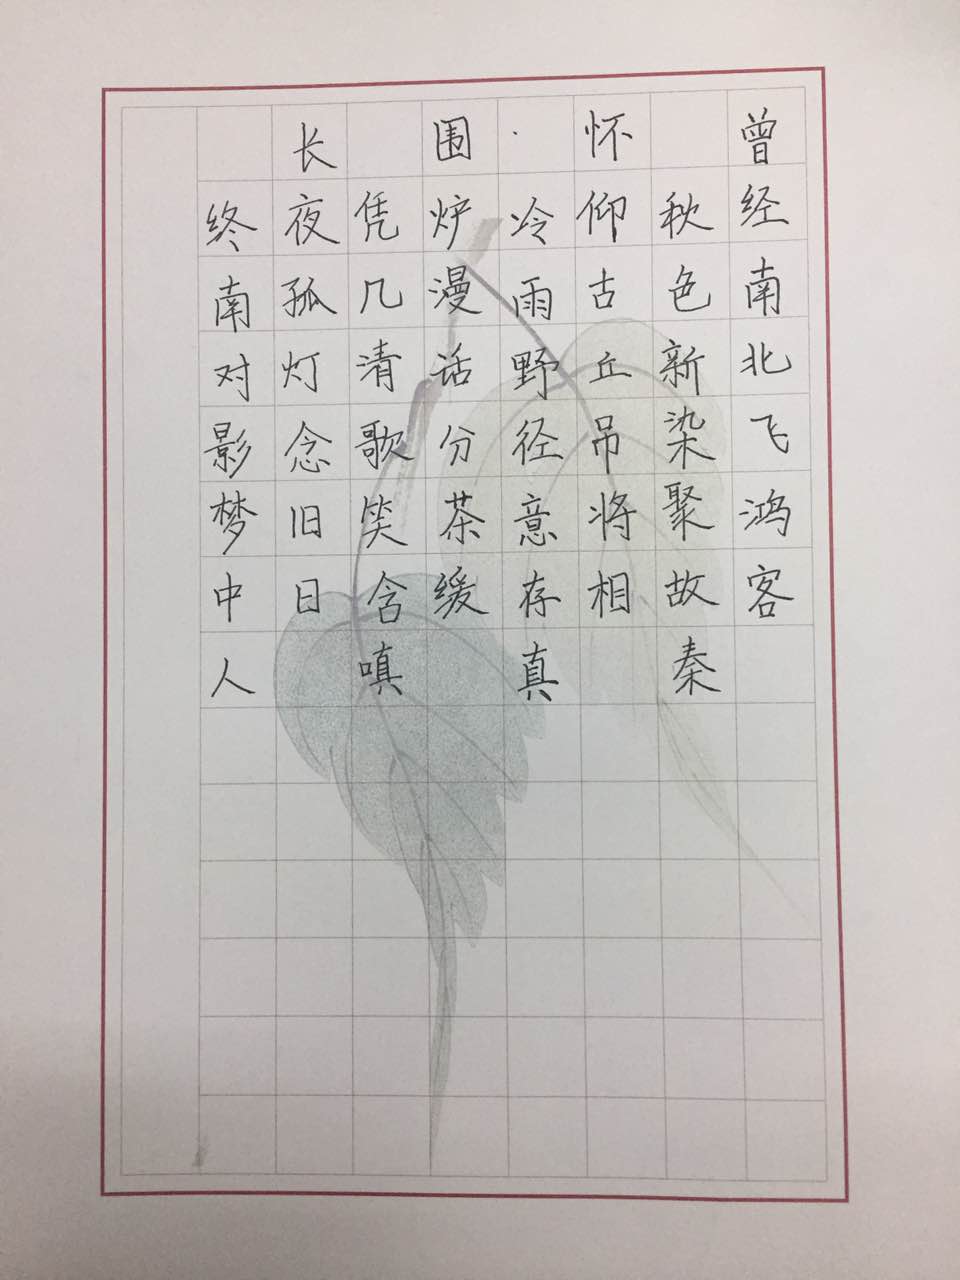 曾经南北飞鸿客
秋色新染聚故秦
怀仰古丘吊将相
冷雨野径意存真
围炉漫话分茶缓
凭几清歌笑含嗔
长夜孤灯念旧日
终南对影梦中人